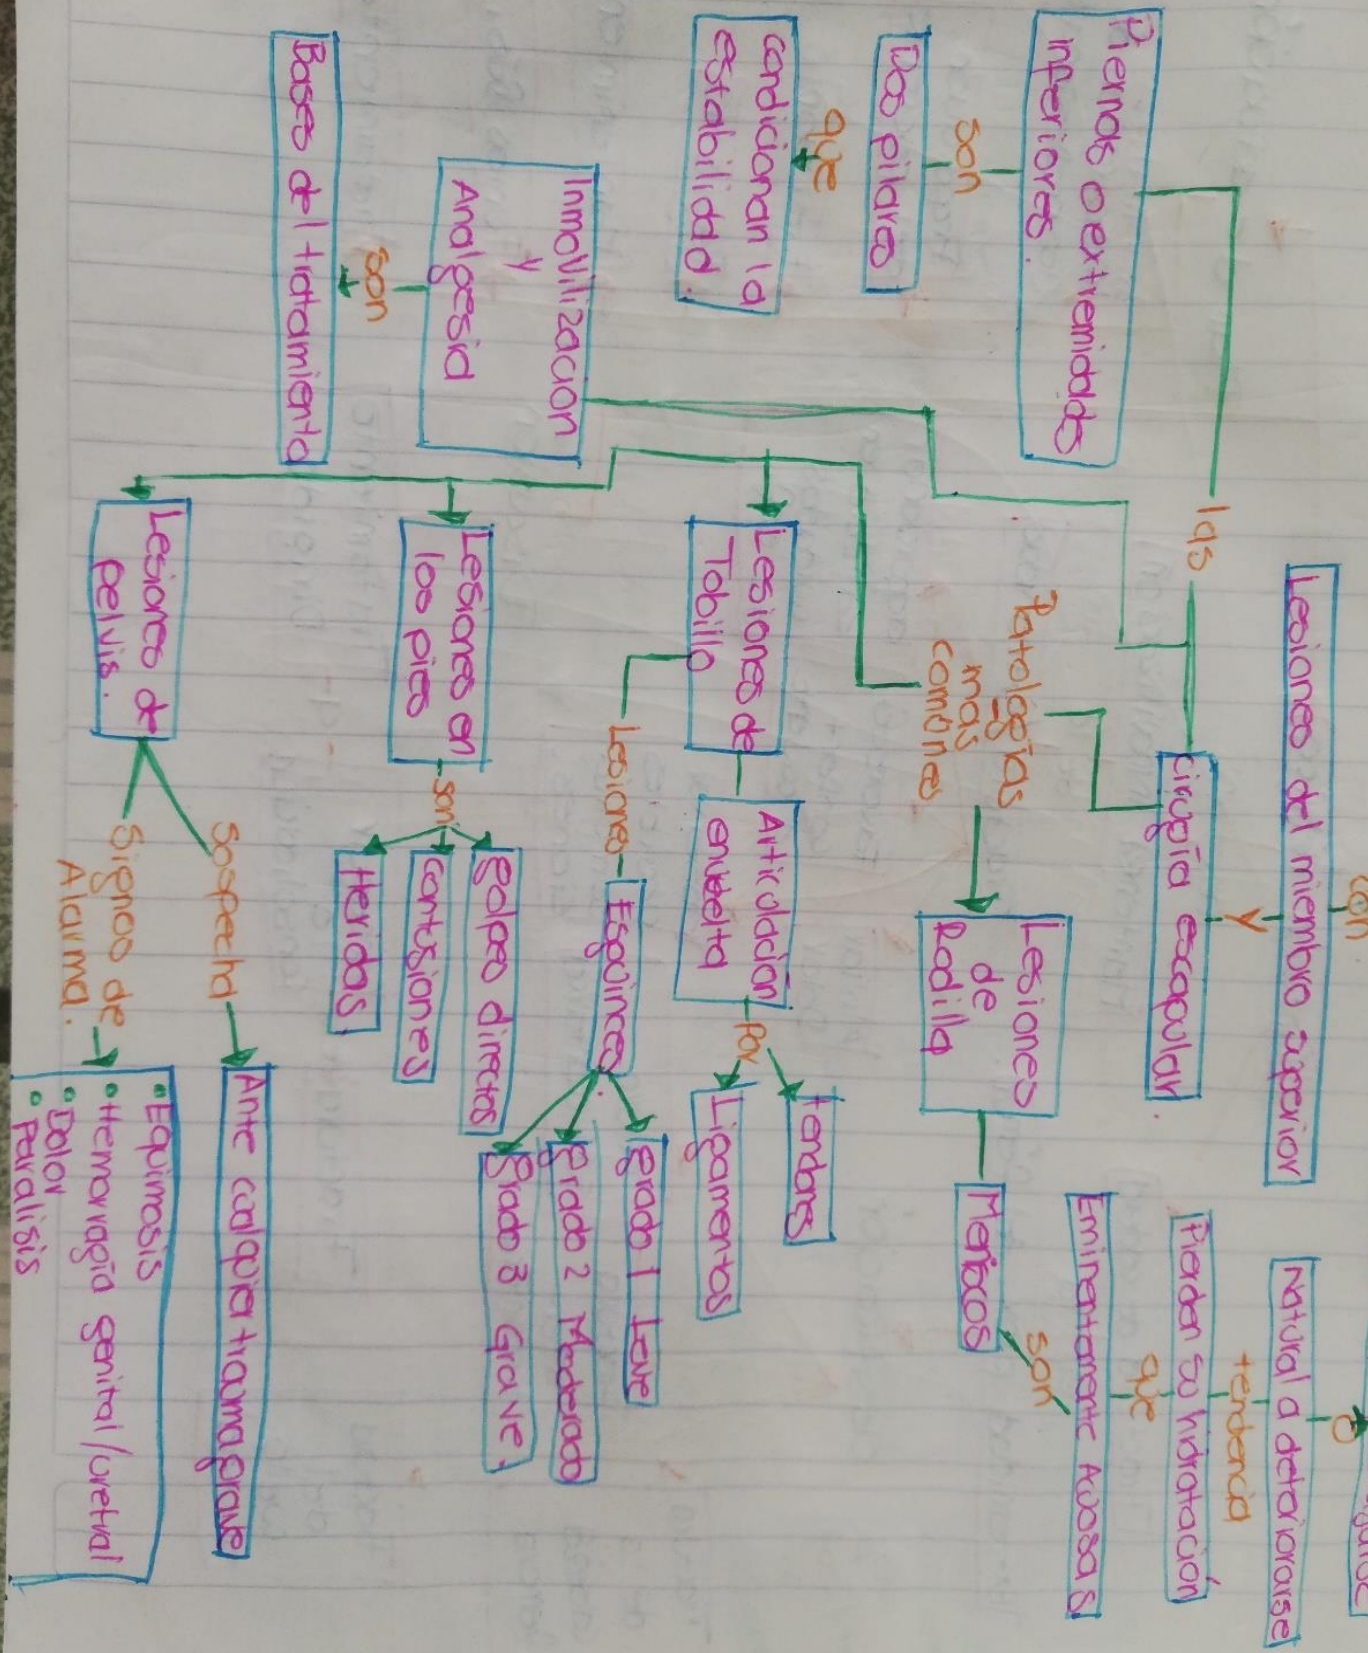 con
Lesiones del miembro superior
y
cirugía escapular.
las
Piernas o extremidades
inferiores.
son
Dos pilares
que
condicionan la
estabilidad.
Inmovilización
y
Analgesia
son
Bases del tratamiento
Patologías
más
comúnes
Lesiones
de
Rodilla
Meñiscos
son
Eminentemente Acuosas
que
Pierden su hidratación
tendencia
Natural a deteriorarse
o
Lesiones de
Tobillo
Articulación
envuelta
por
tendones
Ligamentos
Lesiones
Esguinces
grado 1 Leve
grado 2 Moderado
grado 3 Grave.
Lesiones en
los pies
son
golpes directos
contusiones
Heridas.
Lesiones de
pelvis.
Sospecha
Ante cualquier trauma grave
Signos de
Alarma.
• Equimosis
• Hemorragia genital/uretral
• Dolor
• Paralisis